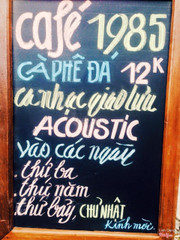 café 1985
CÀ PHÊ ĐÁ 12K
ca nhạc giao lưu
ACOUSTIC
vào các ngày
thứ ba
thứ năm
thứ bảy CHỦ NHẬT
Kính mời